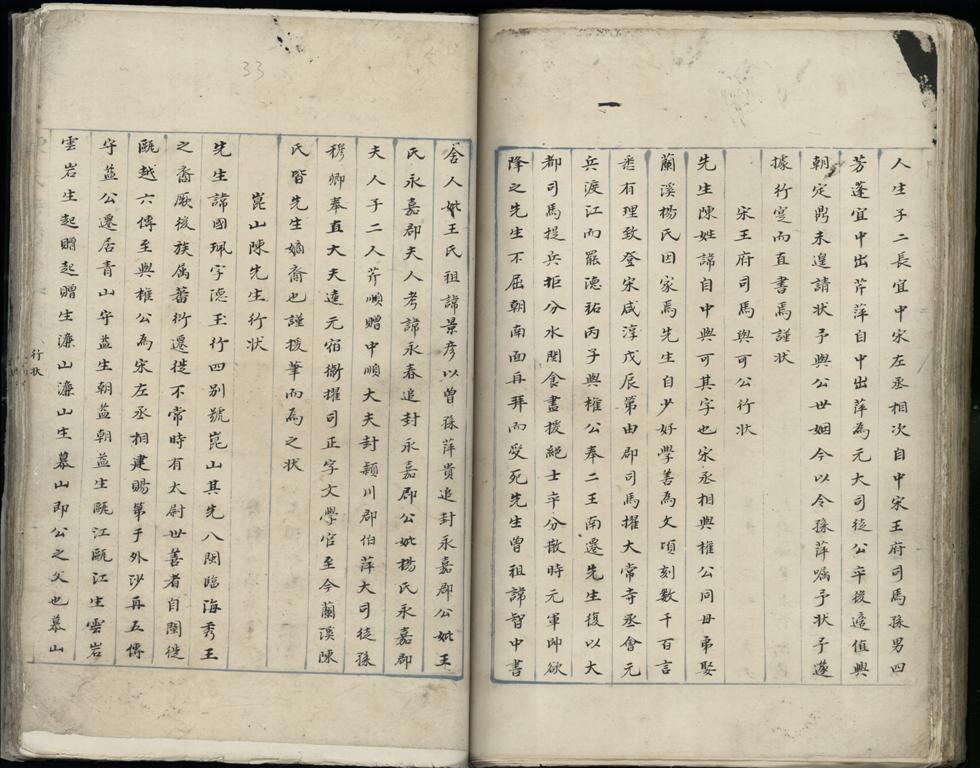 人生子二長宜中宋左丞相次自中宋王府司馬孫男四
芳蓬宜中出芹萍自中出萍為元大司徒公卒後適值興
朝定鼎未遑請状予與公世姻今以令孫萍囑予状予遂
據行寔而直書焉謹状
宋王府司馬與可公行状
先生陳姓諱自中與可其字也宋丞相與權公同母弟娶
蘭溪楊氏因家焉先生自少好學善為文頃刻數千百言
悉有理致登宋咸淳戊辰第由郡司馬擢大常寺丞會元
兵渡江而罷德祐丙子與權公奉二王南遷先生復以大
都司馬提兵拒分水関食盡援絕士卒分散時元軍帥欲
降之先生不屈朝南面再拜而受死先生曾祖諱智中書
舍人妣王氏祖諱景彦以曾孫萍貴追封永嘉郡公妣王
氏永嘉郡夫人考諱永春追封永嘉郡公妣楊氏永嘉郡
夫人子二人芹順贈中順大夫封穎川郡伯萍大司徒孫
穆卿奉直大夫達元宿衛擢司正字文學官至今蘭溪陳
氏皆先生嫡裔也謹援筆而為之状
崑山陳先生行状
先生諱國珮字德玉行四别號崑山其先八閩臨海秀王
之裔厥後族属蕃衍遷徙不常時有太尉世善者自閩徙
甌越六傳至與權公為宋左丞相建賜第于外沙再五傳
守益公遷居青山守益生朝益朝益生甌江甌江生雲岩
雲岩生起贈起贈生濂山濂山生慕山即公之父也慕山
行状
33